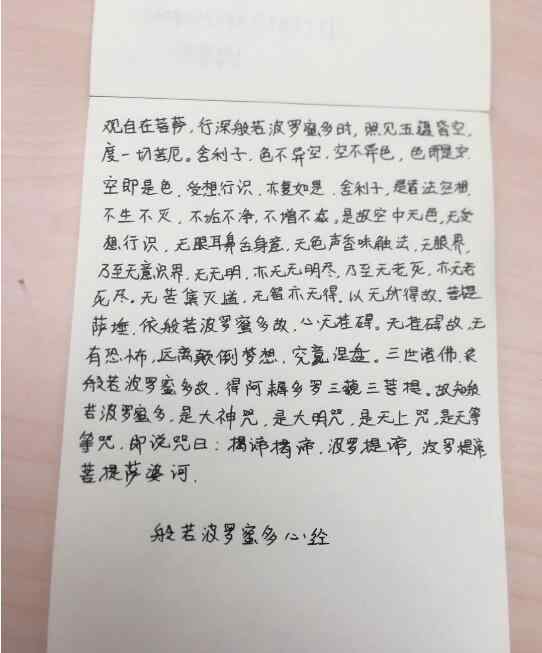 观自在菩萨,行深般若波罗蜜多时,照见五蕴皆空,
度一切苦厄。舍利子,色不异空,空不异色,色即是空
空即是色,受想行识,亦复如是,舍利子,是诸法空相
不生不灭,不垢不净,不增不减,是故空中无色,无受
想行识,无眼耳鼻舌身意,无色声香味触法,无眼界,
乃至无意识界,无无明,亦无无明尽,乃至无老死,亦无老
死尽。无苦集灭道,无智亦无得。以无所得故,菩提
萨埵,依般若波罗蜜多故,心无挂碍。无挂碍故,无
有恐怖,远离颠倒梦想,究竟涅盘。三世诸佛,依
般若波罗蜜多故,得阿耨多罗三藐三菩提。故知般
若波罗蜜多,是大神咒,是大明咒,是无上咒,是无等
等咒,即说咒曰:揭谛揭谛,波罗提谛,波罗提谛
菩提萨婆诃.
般若波罗蜜多心经